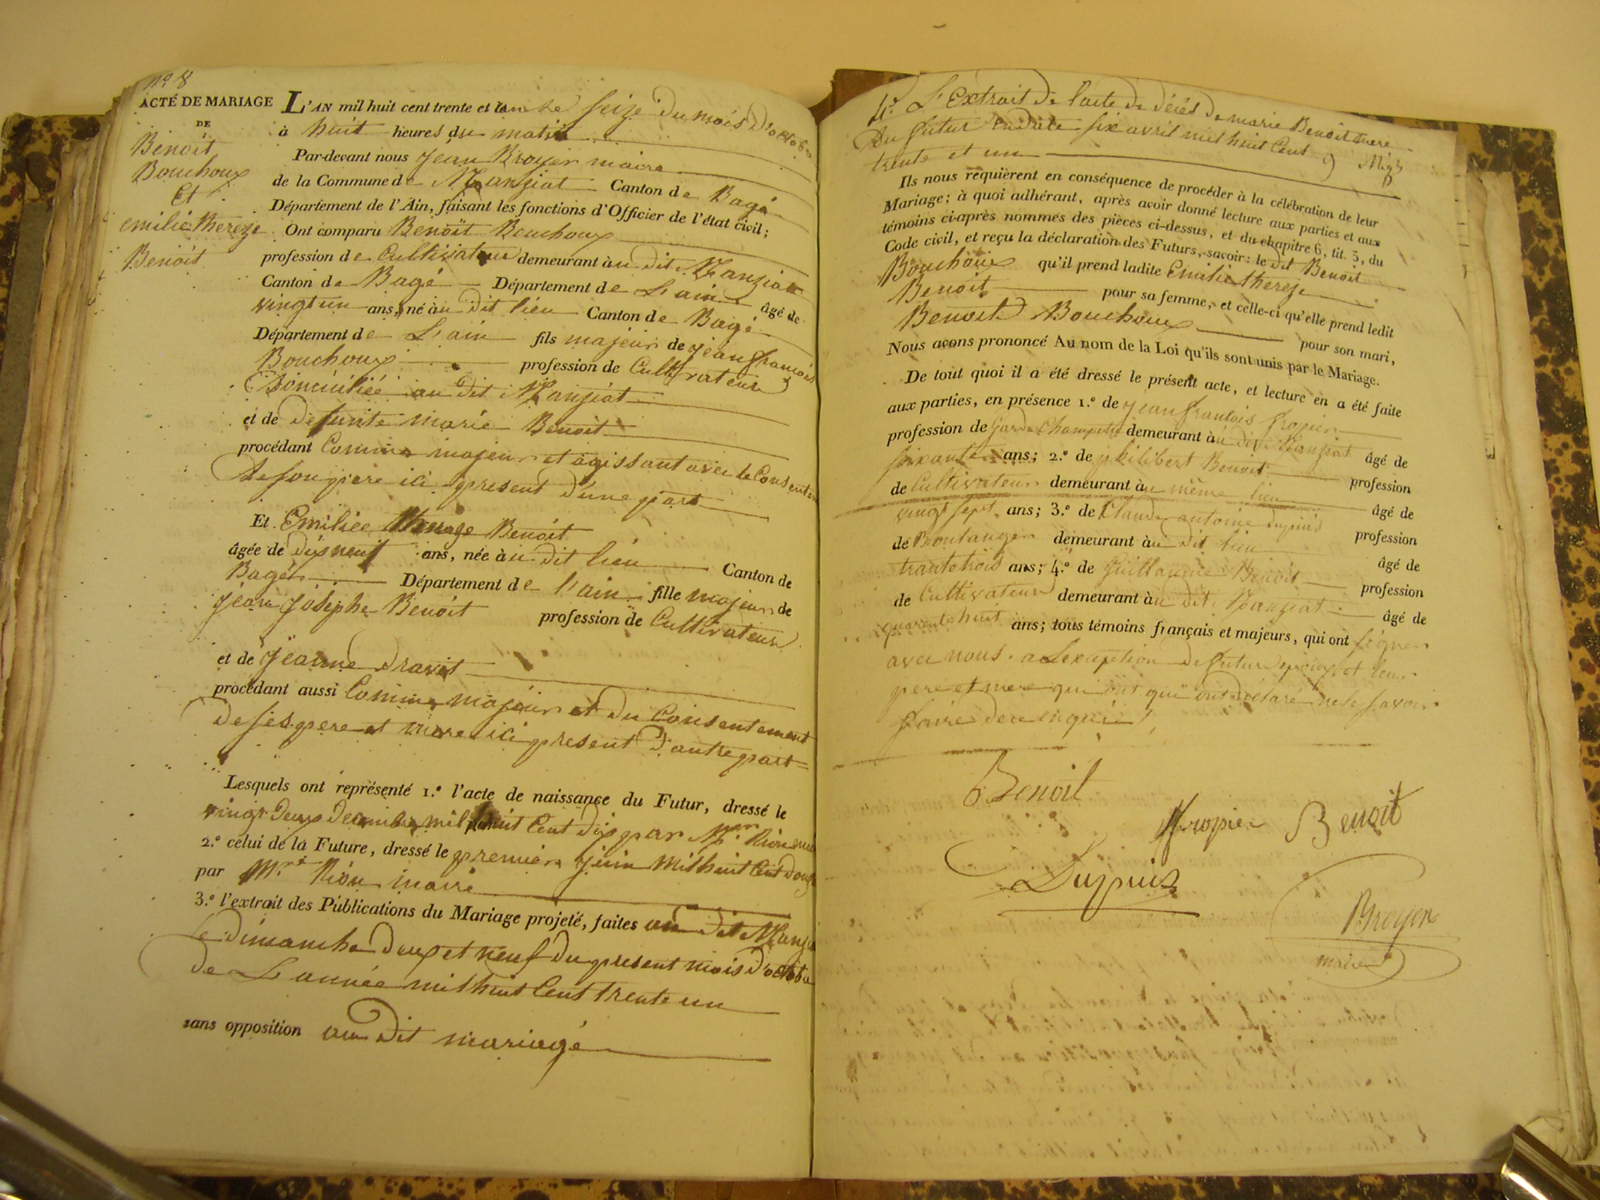 N.o 8
ACTE DE MARIAGE
DE
Benoit
Bouchoux
Et
emilie thereze
Benoit
L'AN mil huit cent trente et un le seize du mois d'octobre
à huit heures du matin
Par-devant nous Jean Broyer maire
de la Commune de Manziat Canton de Bagé
Département de l'Ain, faisant les fonctions d'Officier de l'état civil;
Ont comparu Benoit Bouchoux
profession de Cultivateur demeurant au dit Manziat
Canton de Bagé Département de L'ain âgé de
vingt un ans, né au dit lieu Canton de Bagé
Département de L'ain fils majeur de jean françois
Bouchoux profession de Cultivateur
Domiciliée au dit Manziat
et de defunte marie Benoit
procédant Comme majeur et agissant avec le Consentement
de son pere ici present d'une part
Et Emiliee Benoit
âgée de dix neuf ans, née au dit lieu Canton de
Bagé Département de l'ain fille majeur de
Jean Josephe Benoit profession de Cultivateur
et de Jeanne
procédant aussi Comme majeur et du Consentement
de ses pere et mere ici present d'autre part
Lesquels ont représenté 1.º l'acte de naissance du Futur, dressé le
vingt deux mil huit Cent dix par Mr. Rion
2.º celui de la Future, dressé le premier juin mil huit Cent douze
par Mr. Rion maire
3.º l'extrait des Publications du Mariage projeté, faites au dit Manziat
le dimanche deux et neuf du present mois d'octobre
de L'année mil huit Cent trente un
sans opposition au dit mariage
4.º L'Extrait de l'acte de décés de marie Benoit mere
du futur en date six avril mil huit Cent
trente et un
Ils nous requièrent en conséquence de procéder à la célébration de leur
Mariage; à quoi adhérant, après avoir donné lecture aux parties et aux
témoins ci-après nommés des pièces ci-dessus, et du chapitre 6, tit. 5, du
Code civil, et reçu la déclaration des Futurs, savoir: le dit Benoit
Bouchoux qu'il prend ladite Emilie thereze
Benoit pour sa femme, et celle-ci qu'elle prend ledit
Benoit Bouchoux pour son mari,
Nous avons prononcé Au nom de la Loi qu'ils sont unis par le Mariage.
De tout quoi il a été dressé le présent acte, et lecture en a été faite
aux parties, en présence 1.º de jean françois
profession de Garde Champetre demeurant au dit Manziat âgé de
soixante ans; 2.º de philibert Benoit profession
de Cultivateur demeurant au même lieu âgé de
vingt sept ans; 3.º de Claude antoine Dupuis profession
de Boulanger demeurant au dit lieu âgé de
trante trois ans; 4.º de Guillaume Benoit profession
de Cultivateur demeurant au dit Manziat âgé de
quarente huit ans; tous témoins français et majeurs, qui ont signer
avec nous a L'exception de futur epoux et leur
pere et mere qui ont déclaré ne le savoir
faire de ce enquis
Benoit
Benoit
Dupuis
Broyer
maire